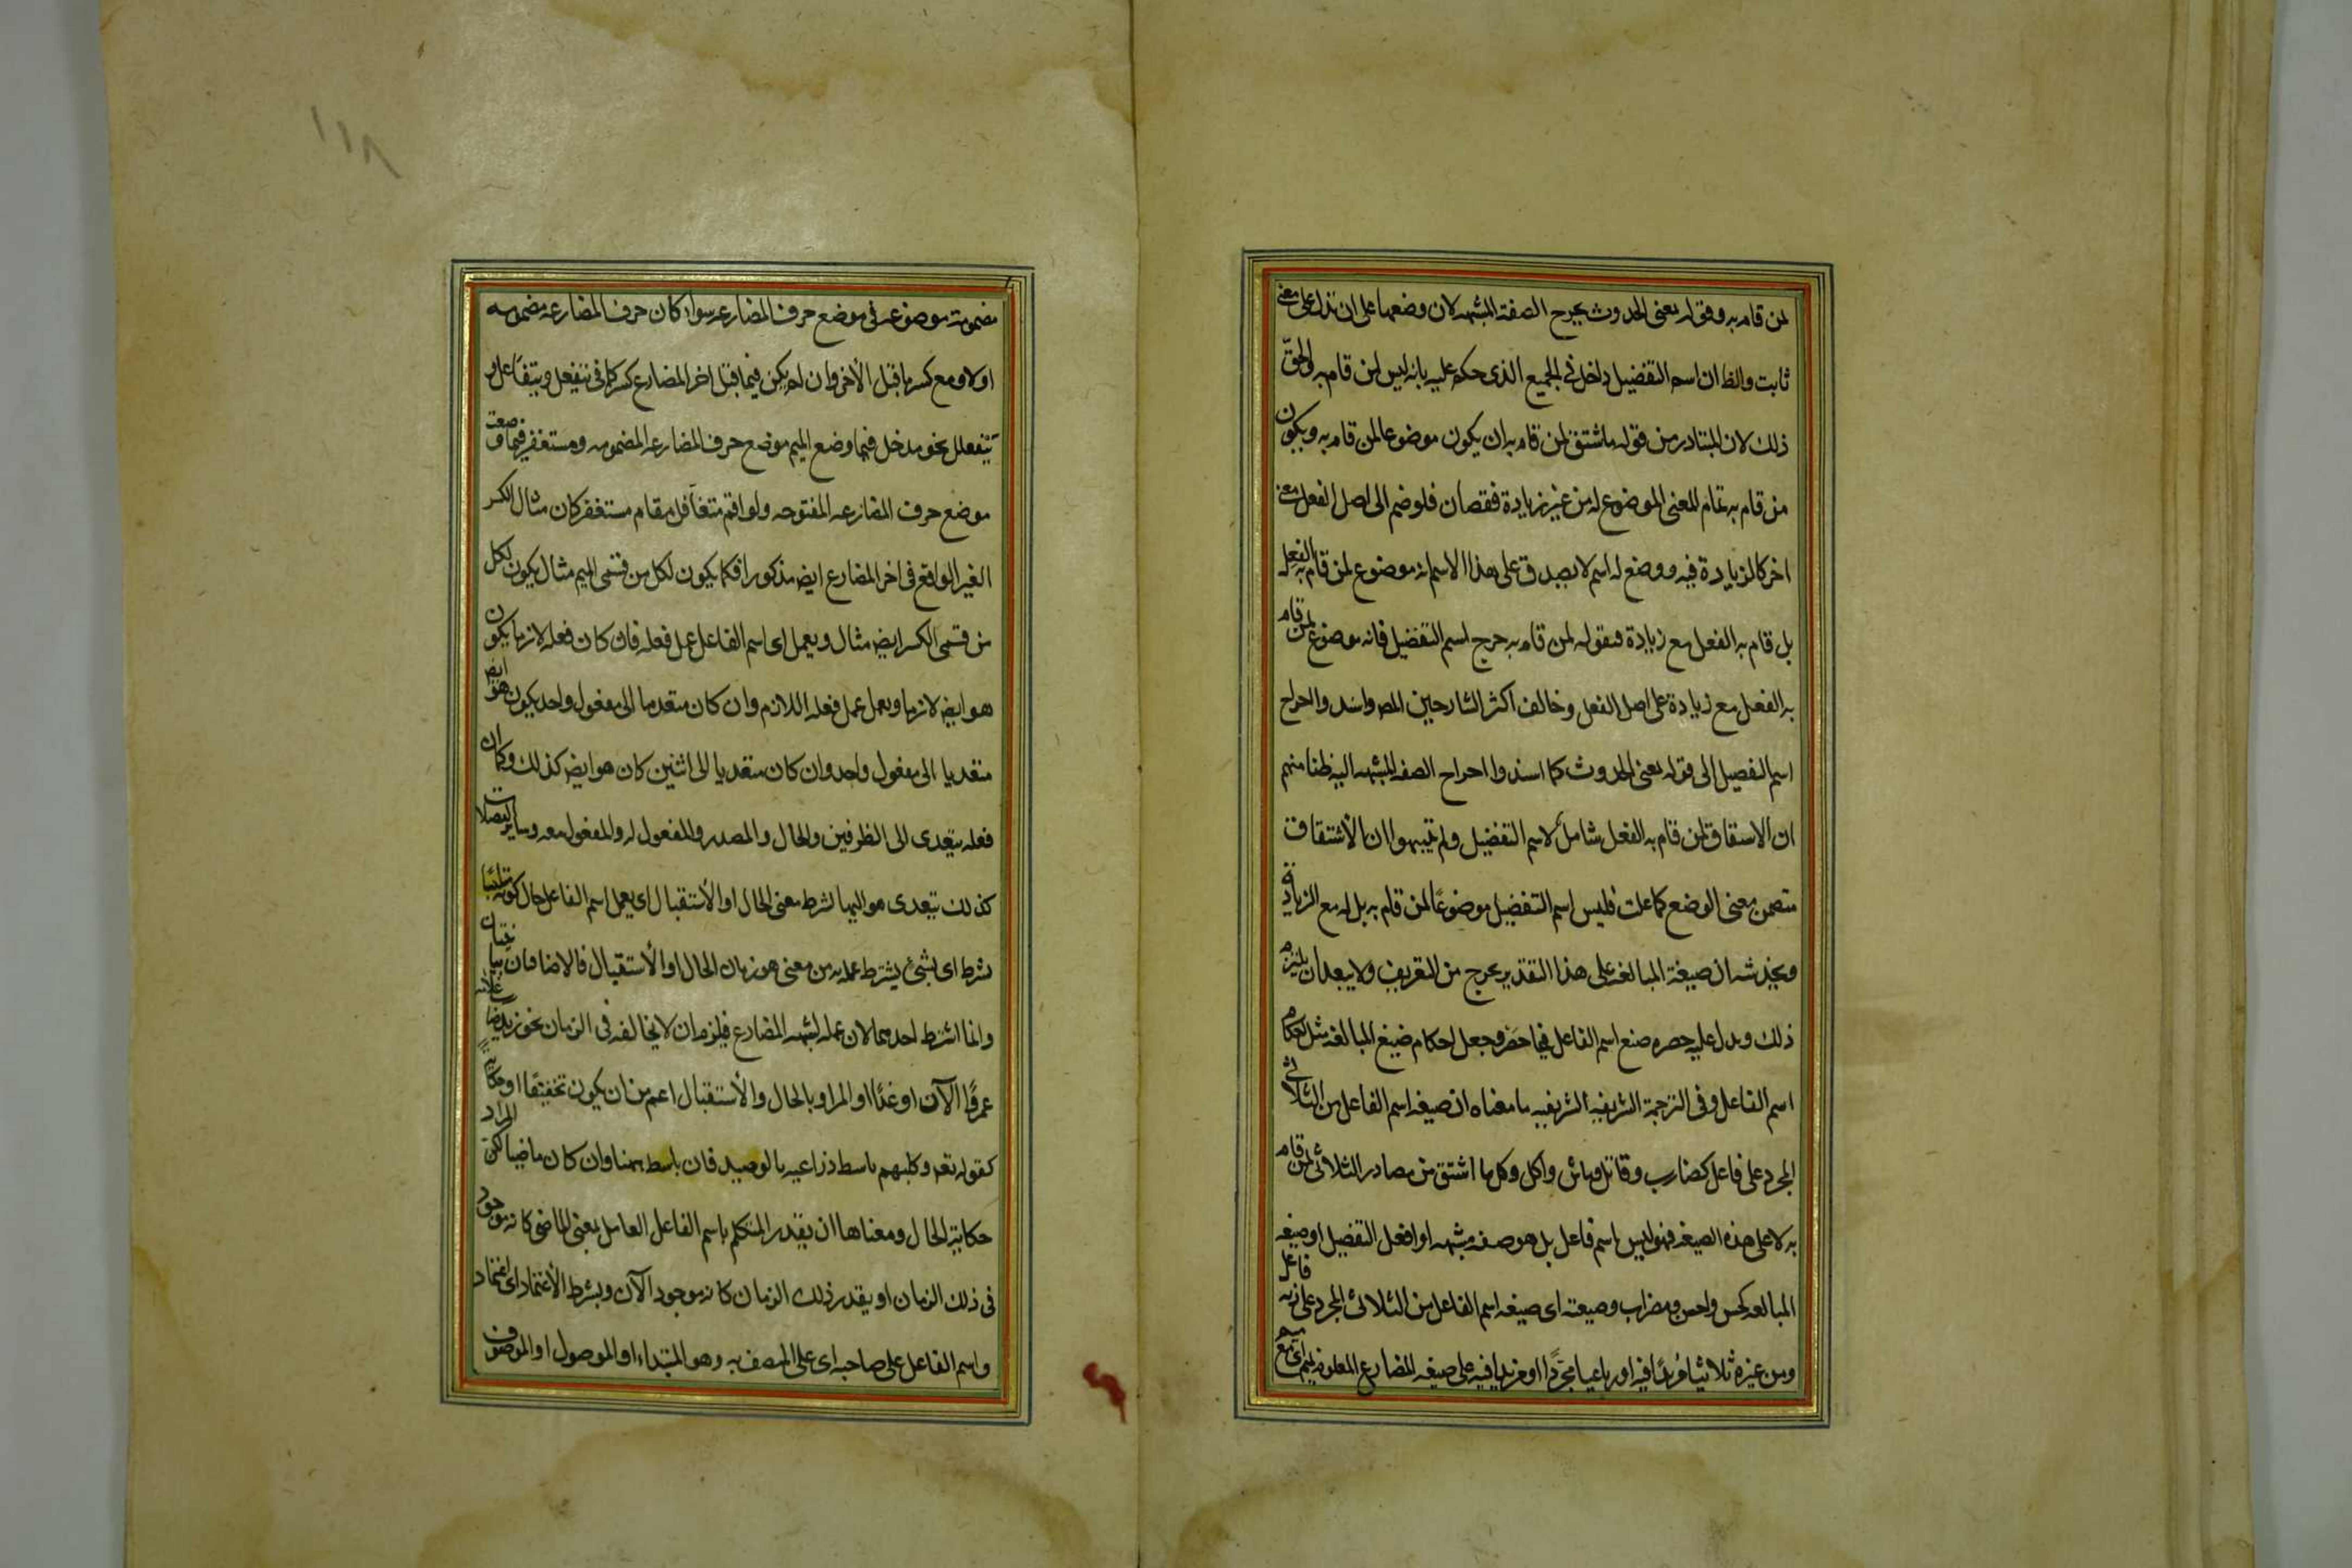 لمن قام به وقوله بمعنى الحدوث يخرج الصفة المشبهه لان وضعها على ان تدل على معنى
ثابت والظ ان اسم التفضيل داخل فى الجميع الذى حكم عليه بانه ليس لمن قام به والحق
ذلك لان المتبادر من قوله ما اشتق لمن قام به ان يكون موضوعا لمن قام به ويكون
من قام به تمام المعنى الموضوع له من غير زيادة فقصان فلو ضم الى اصل الفعل معنى
اخر كالزيادة فيه ووضع له اسم لا يصدق على هذا الاسم انه موضوع لمن قام به الفعل
بل قام به الفعل مع زيادة فبقوله لمن قام به خرج اسم التفضيل فانه موضوع لمن قام
به الفعل مع زيادة على اصل الفعل وخالف اكثر الشارحين المص واسند والحراح
اسم التفصيل الى قوله بمعنى الحدوث كما اسندوا احراح الصفه المشبهه اليه ظنا منهم
ان الاسقاق لمن قام به الفعل شامل لاسم التفضيل ولم يتنبهوا ان الأشتقاق
متضمن معنى الوضع كما علمت فليس اسم التفضيل موضوعًا لمن قام به بل له مع الزيادة
ويخدشه ان صيغة المبالغه على هذا التقدير يخرج من التعريف ولا يبعد ان يلتزم
ذلك ويدل عليه حصره صيغ اسم الفاعل فيما حصر وجعل احكام صيغ المبالغه مثل احكام
اسم الفاعل وفى الترجمة الشريفيه الشريفيه ما معناه ان صيغه اسم الفاعل من الثلاثى
المجرد على فاعل كضارب وقاتل وماش وآكل وكل ما اشتق من مصادر الثلاثى لمن قام
به لا على هذه الصيغه فهو ليس باسم فاعل بل هو صفه مشبهه او افعل التفضيل او صيغه
المبالغه كحسن واحسن ومضراب وصيغته اى صيغه اسم الفاعل من الثلاثى المجرد على زنه فاعل
ومن غيره ثلاثيا مزيدًا فيه او رباعيا مجردًا او مزيدا فيه على صيغه المضارع المعلوم بميم اى مع ميم
مضمومة موضوعة فى موضع حرف المضارعه سواء كان حرف المضارعه مضمومه
اولا ومع كسر ما قبل الأخر وان لم يكن فيما قبل اخر المضارع كسر كما فى يتفعل ويتفاعل و
يتفعلل نحو مدخل فيما وضع الميم موضع حرف المضارعه المضمومه ومستغفر فيما وضعت
موضع حرف المضارعه المفتوحه ولو اقيم متغافل مقام مستغفر كان مثال الكسر
الغير الواقع فى اخر المضارع ايض مذكورا فكما يكون لكل من قسمى الميم مثال يكون لكل
من قسمى الكسر ايض مثال ويعمل اى اسم الفاعل عمل فعله فان كان فعله لازما يكون
هو ايض لازما ويعمل عمل فعله اللازم وان كان متعديا الى مفعول واحد يكون هو ايض
متعديا الى مفعول واحد وان كان متعديا الى اثنين كان هو ايض كذلك وكما ان
فعله يتعدى الى الظرفين والحال والمصدر والمفعول له والمفعول معه وساير الفضلات
كذلك يتعدى هو اليها بشرط معنى الحال او الأستقبال اى يعمل اسم الفاعل حال كونه متلبسا
بشرط اى بشىء يشترط عمله به من معنى هو زمان الحال او الأستقبال فالاضافتان بيانيتان
وانما اشترط احدهما لان عمله لشبهه المضارع فيلزم ان لا يخالفه فى الزمان نحو زيد ضارب غلامه
عمرًوا الآن او غدًا والمراد بالحال والأستقبال اعم من ان يكون تحقيقًا او حكايةً
كقوله تعه وكلبهم باسط ذراعيه بالوصيد فان باسط ههنا وان كان ماضيا لكن المراد
حكاية الحال ومعناها ان يقدر المتكلم باسم الفاعل العامل بمعنى الماضى كانه موجود
فى ذلك الزمان او يقدر ذلك الزمان كانه موجود الآن وبشرط الأعتماد اى اعتماد
واسم الفاعل على صاحبه اى على المتصف به وهو المبتداء او الموصول او الموصوف
١١٨